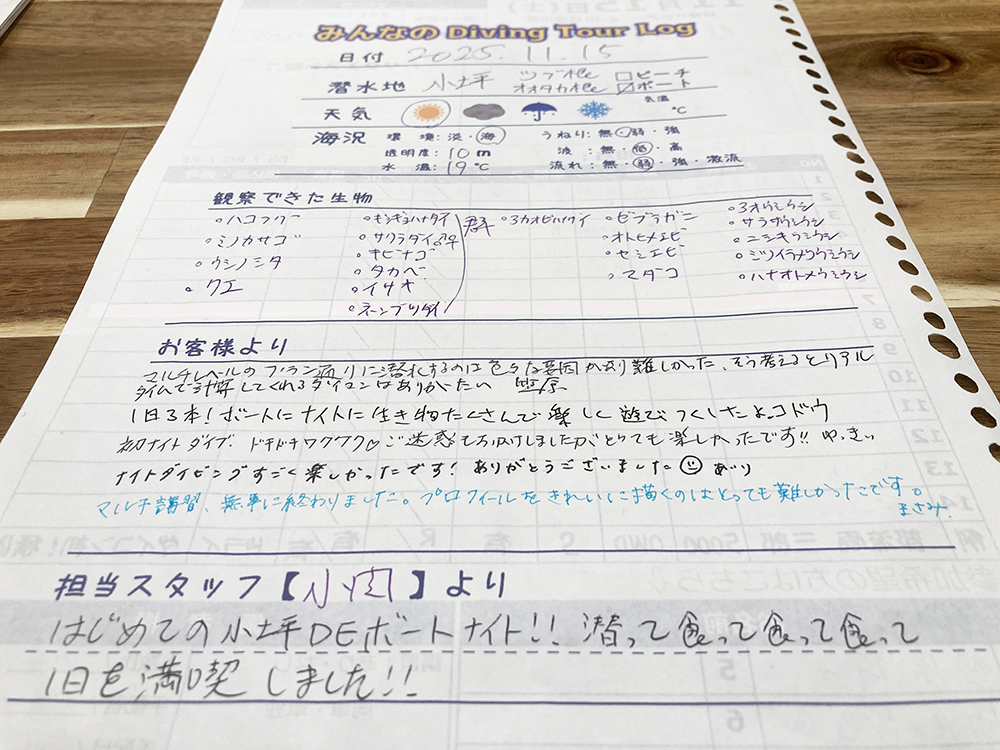 みんなの Diving Tour Log
日付 2025. 11. 15
潜水地 小坪 ツブ根 オオタカ根 □ビーチ ☑ボート
天気 気温 ℃
海況 環境:淡・海 うねり:無・弱・強
透明度:10m 波:無・低・高
水温:19℃ 流れ:無・弱・強・激流
観察できた生物
○ハコフグ ○キンギョハナダイ 群 ○ミカオビハナダイ ○ゼブラガニ ○ミオウミウシ
○ミノカサゴ ○サクラダイ♂♀ ○オトヒメエビ ○サラサウミウシ
○ウシノシタ ○キビナゴ ○セミエビ ○ニシキウミウシ
○クエ ○タカベ ○マダコ ○ミツイラメリウミウシ
○イサキ ○ハナオトメウミウシ
○ネンブツダイ
お客様より
マルチレベルのプラン通りに潜水するのは色々な要因があり難しかった、そう考えるとリアル
タイムで計算してくれるダイコンはありがたい
1日3本!ボートにナイトに生き物たくさんで楽しく遊びつくしたよ。コドウ
初ナイトダイブ、ドキドキワクワク♡ご迷惑をおかけしましたがとっても楽しかったです!! ゆっきぃ
ナイトダイビングすごく楽しかったです!ありがとうございました☺ あいり
マルチ講習、無事に終わりました。プロフィールをきれいに描くのはとっても難しかったです。
まさみ
担当スタッフ【小肉】より
はじめての小坪DEボートナイト!! 潜って食って食って食って
1日を満喫しました!!